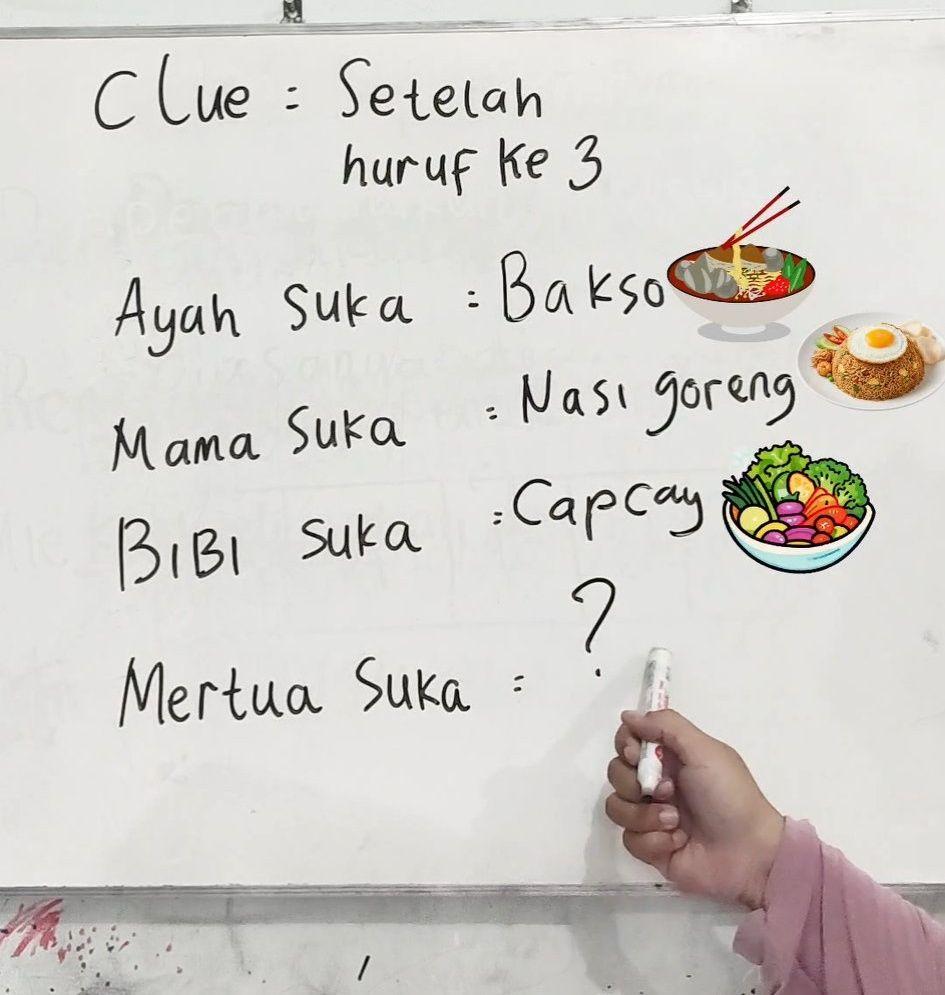 Clue = Setelah
huruf ke 3
Ayah suka = Bakso
Mama suka = Nasi goreng
BIBI suka = Capcay
Mertua suka = ?